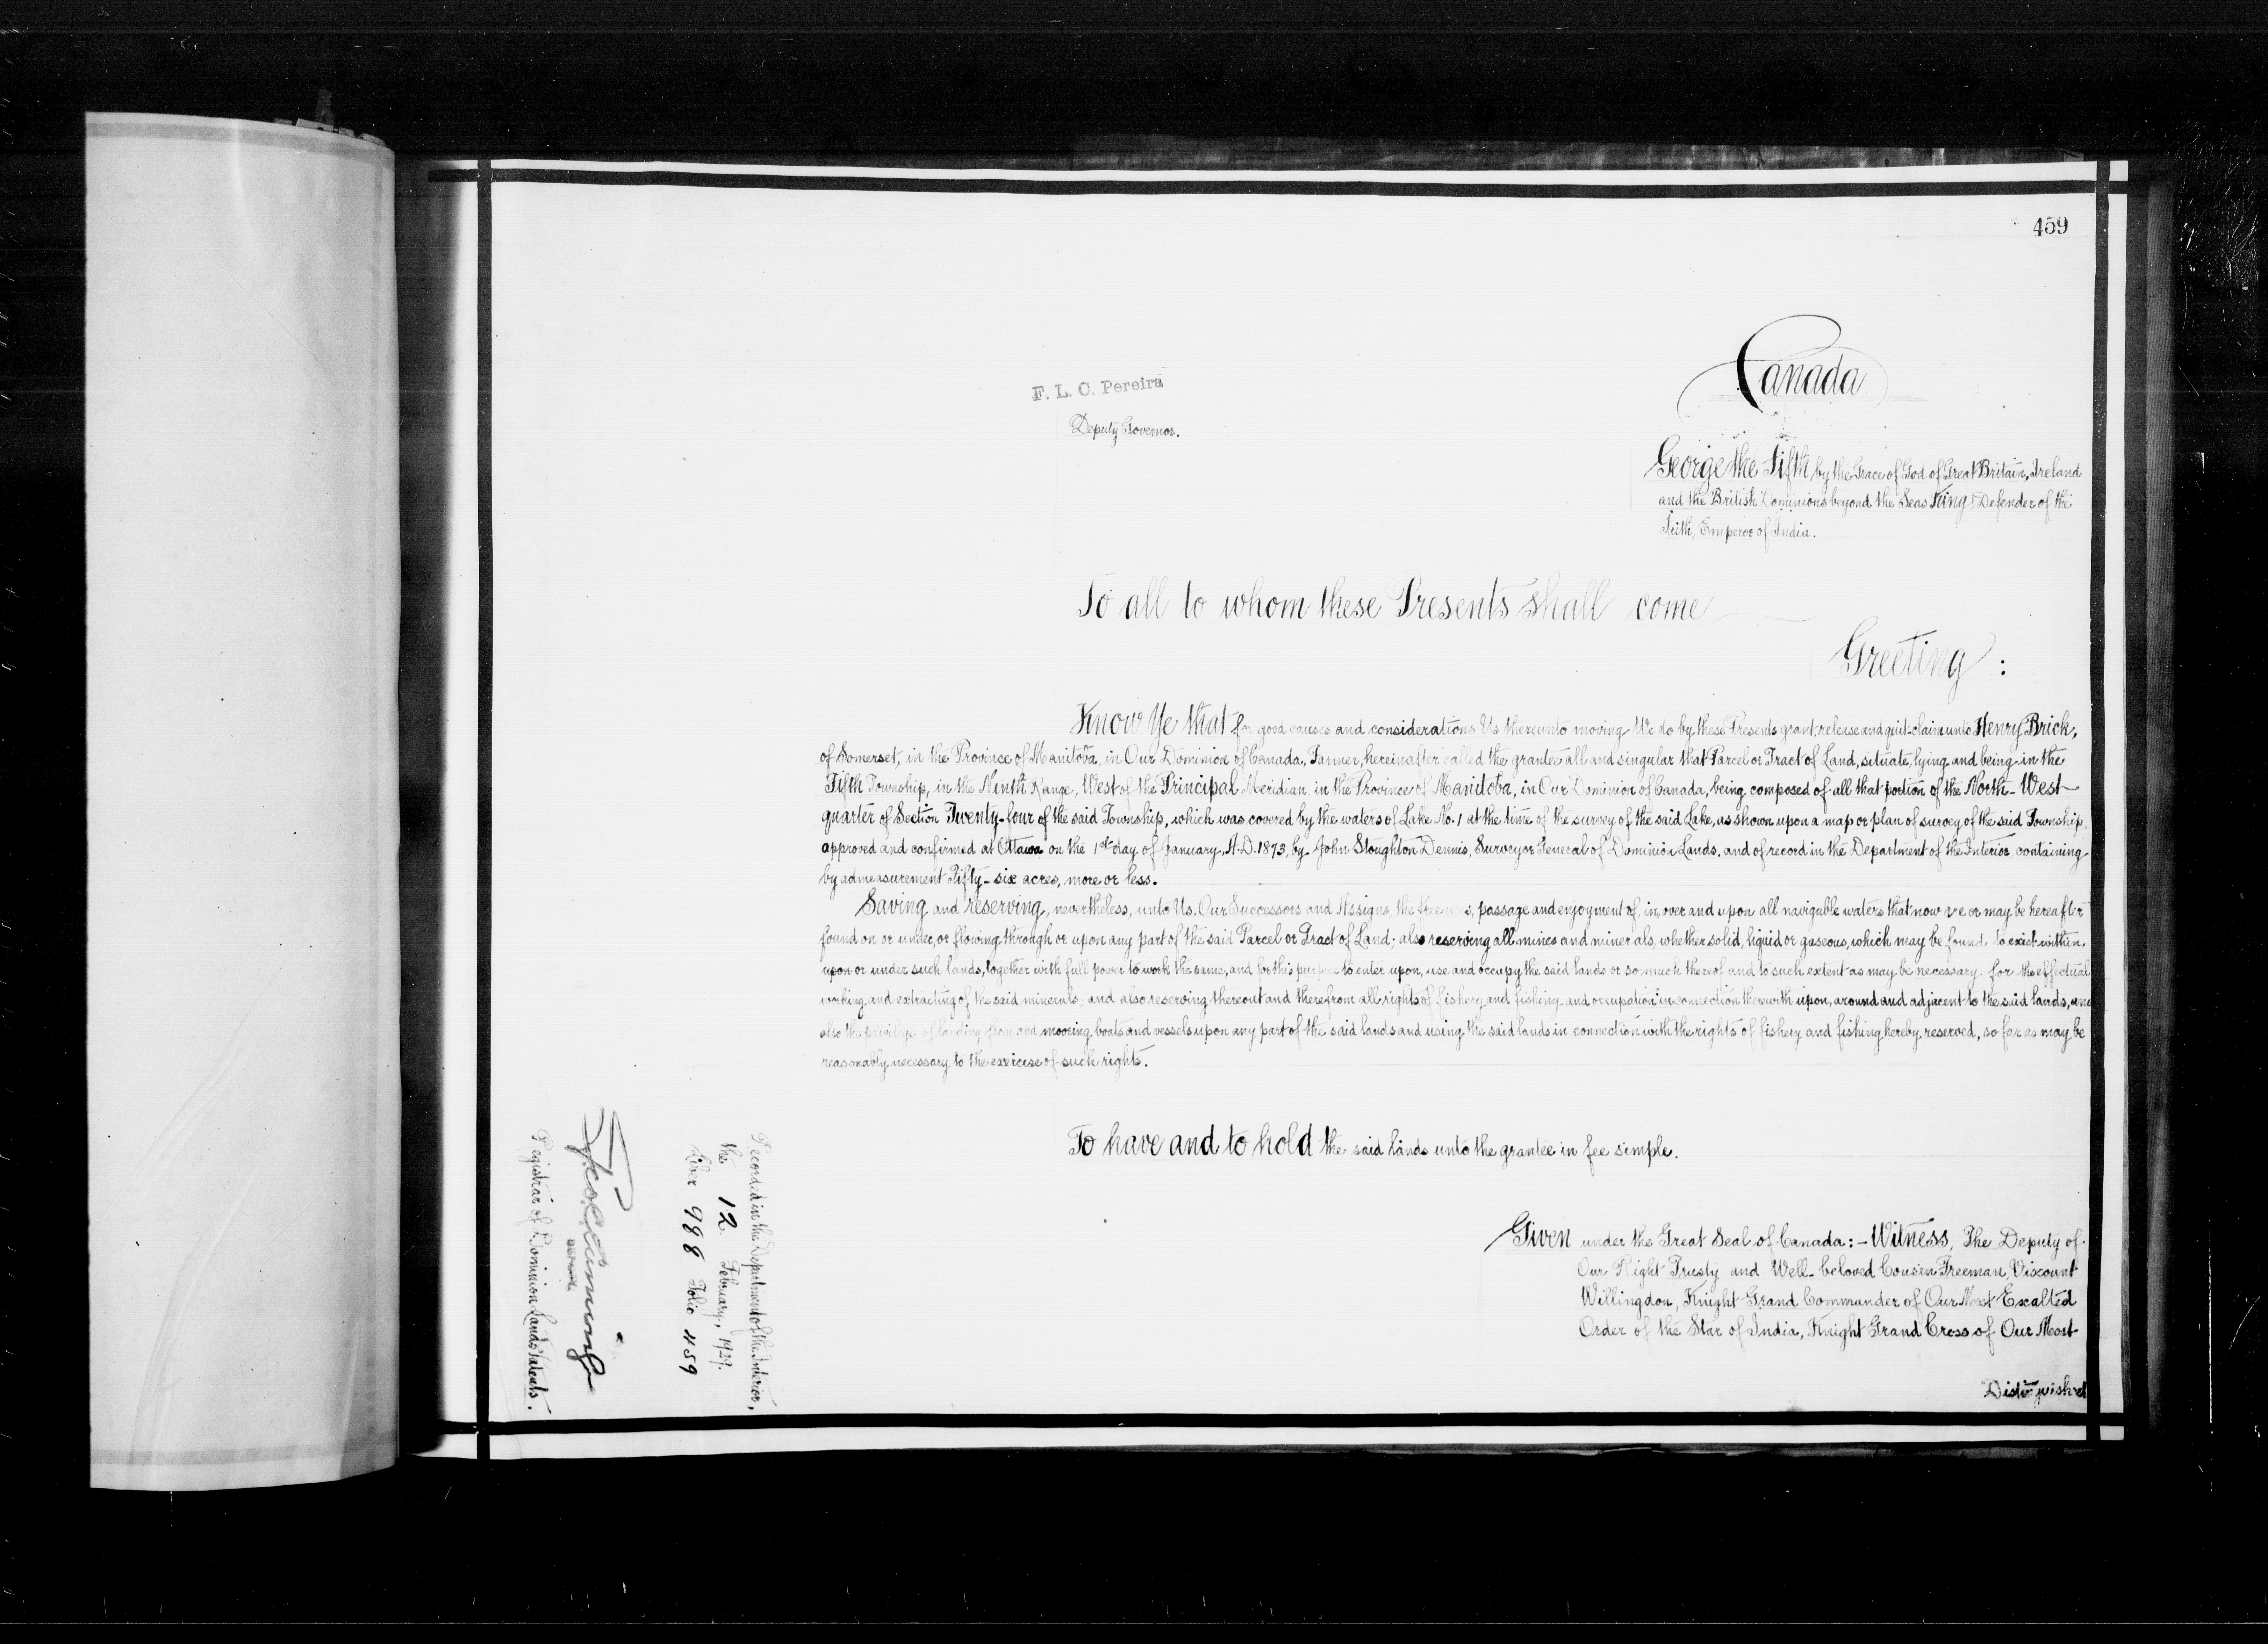 459
Canada
F. L. C. Pereira
Deputy Governor.
George the Fifth by the Grace of God of Great Britain, Ireland
and the British Dominions beyond the Seas King, Defender of the
Faith, Emperor of India.
To all to whom these Presents shall come
Greeting :
Know Ye that for good causes and considerations Us thereunto moving We do by these Presents grant, release and quit-claim unto Henry Brick,
of Somerset, in the Province of Manitoba, in Our Dominion of Canada, Farmer, hereinafter called the grantee all and singular that Parcel or Tract of Land, situate, lying and being in the
Fifth Township, in the Ninth Range, West of the Principal Meridian in the Province of Manitoba, in Our Dominion of Canada, being composed of all that portion of the North-West
quarter of Section Twenty-four of the said Township, which was covered by the waters of Lake No. 1 at the time of the survey of the said Lake, as shown upon a map or plan of survey of the said Township,
approved and confirmed at Ottawa on the 1st day of January, A.D. 1873, by John Stoughton Dennis, Surveyor General of Dominion Lands, and of record in the Department of the Interior, containing
by admeasurement Fifty-six acres, more or less.
Saving and reserving, nevertheless, unto Us, Our Successors and Assigns, the free uses, passage and enjoyment of, in, over and upon all navigable waters that now are or may be hereafter
found on or under, or flowing through or upon any part of the said Parcel or Tract of Land; also reserving all mines and minerals, whether solid, liquid or gaseous, which may be found to exist within,
upon or under such lands, together with full power to work the same, and for this purpose to enter upon, use and occupy the said lands or so much thereof and to such extent as may be necessary for the effectual
working and extracting of the said minerals; and also reserving thereout and therefrom all rights of fishery and fishing and occupation in connection therewith upon, around and adjacent to the said lands, and
also the privilege of landing from and mooring boats and vessels upon any part of the said lands and using the said lands in connection with the rights of fishery and fishing hereby reserved, so far as may be
reasonably necessary to the exercise of such rights.
To have and to hold the said lands unto the grantee in fee simple.
Given under the Great Seal of Canada: - Witness, The Deputy of
Our Right Trusty and Well-beloved Cousin Freeman, Viscount
Willingdon, Knight Grand Commander of Our Most Exalted
Order of the Star of India, Knight Grand Cross of Our Most
Distinguished
Recorded in the Department of the Interior,
the 12 February, 1929.
Liber 988 Folio 459
Registrar of Dominion Lands Patents.